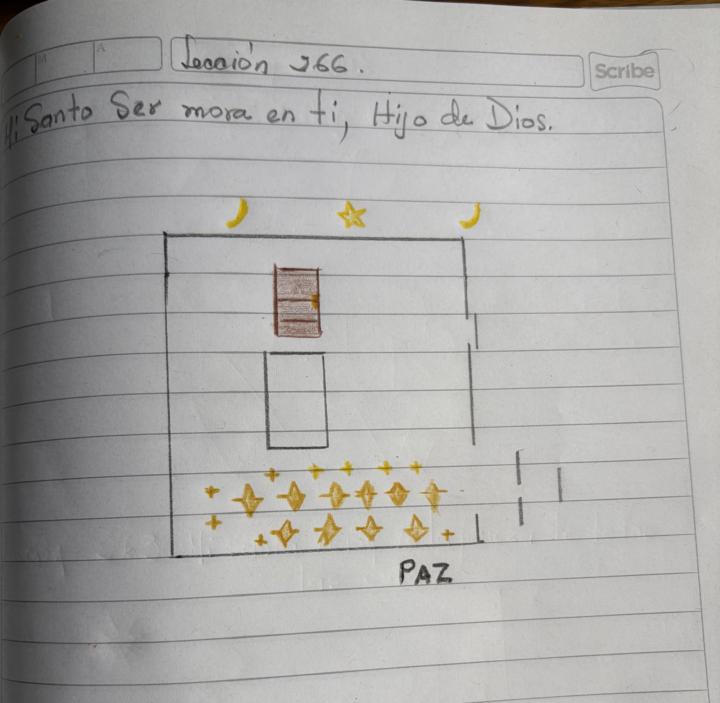 M
A
Lección 266.
Scribe
Mi Santo Ser mora en ti, Hijo de Dios.
PAZ